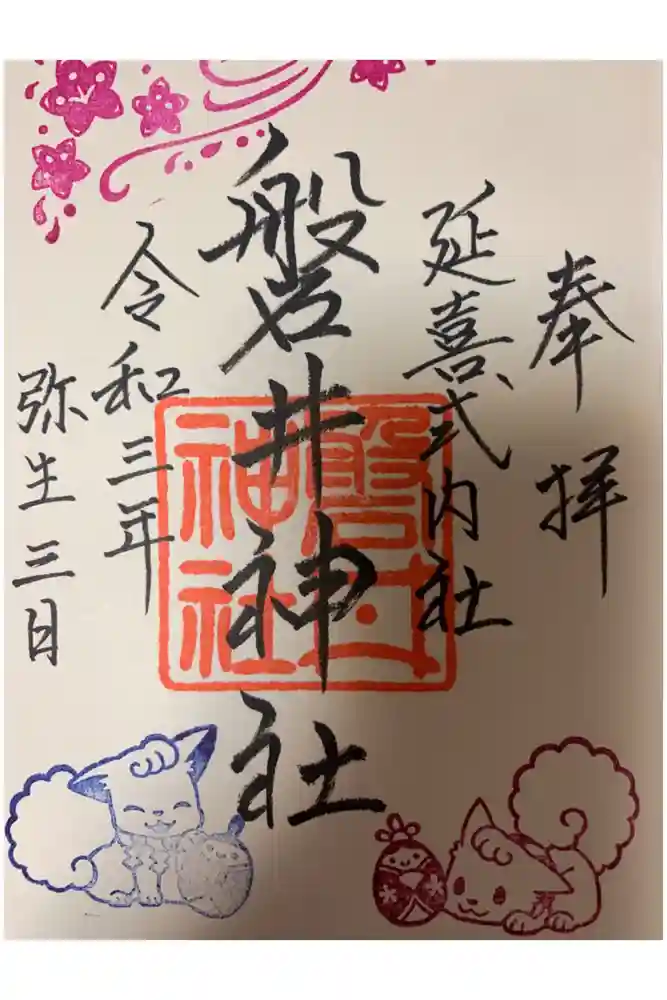 奉拝
延喜式内社
磐井神社
磐井
神社
令和三年
弥生三日